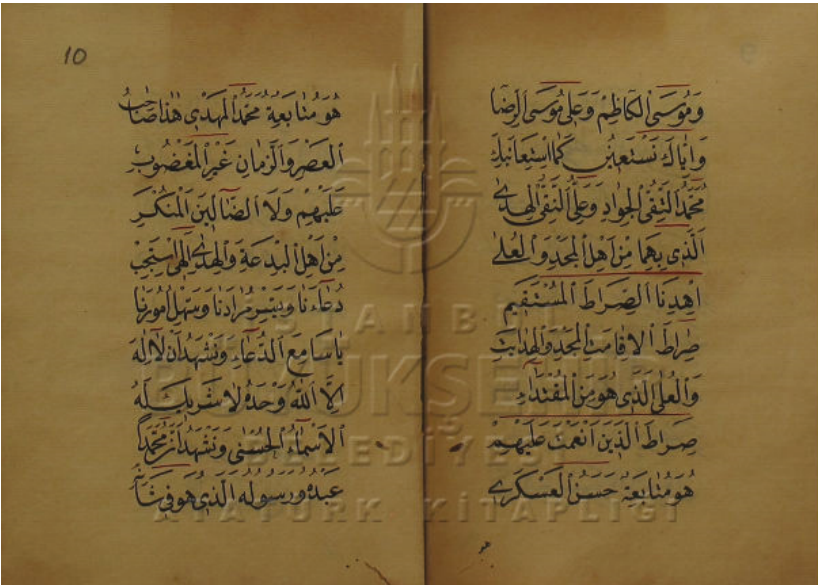 وَمُوسَى الكَاظِمْ وَعَلى مُوسَى الرِضَا
وَاِيَّاكَ نَسْتَعِينُ كَمَا اسْتِعَانَتِكَ
مُحَمَّدُ التَّقِىُّ الجَوَادِ وَعَلِىُّ النَّقِىُّ الهُدٰى
الَّذِى بِهِمَا مِنْ اَهْلِ المَجْدِ وَالعُلىٰ
اِهْدِنَا الصِّرَاطَ المُسْتَقِيم
صِرَاطَ الاِقَامَتِ المَجْدِ وَالهِدَايَتِ
وَالعُلَى الَّذِى هُوَ مِنَ المُقْتَدَاءِ
صِرَاطَ الَّذِينَ اَنْعَمْتَ عَلَيْهِمْ
هُوَ مُتَابَعَةُ حَسَنُ العَسْكَرِى
10
هُوَ مُتَابَعَةُ مُحَمَّدُ المَهْدِى هٰذَا صَاحِبُ
العَصْرِ وَالزَّمَانِ غَيْرِ المَغْضُوبِ
عَلَيْهِمْ وَلَا الضَّالِّينَ المُنْكَرِ
مِنْ اَهْلِ البِدْعَةِ وَالهِدٰى اِلٰهِى اسْتَجِبْ
دُعَاءَنَا وَيَسِّرْ مُرَادَنَا وَسَهِّلْ اُمُورَنَا
يَا سَامِعَ الدُّعَاءِ وَنَشْهَدُ اَنْ لَا اِلٰهَ
اِلَّا اللّٰهُ وَحْدَهُ لَا شَرِيكَ لَهُ
الاَسْمَاءُ الحُسْنٰى وَنَشْهَدُ اَنَّ مُحَمَّدًا
عَبْدُهُ وَرَسُولُهُ الَّذِى هُوَ فِى شَأْنِ
İSTANBUL
BÜYÜKŞEHİR
BELEDİYESİ
ATATÜRK KİTAPLIĞI